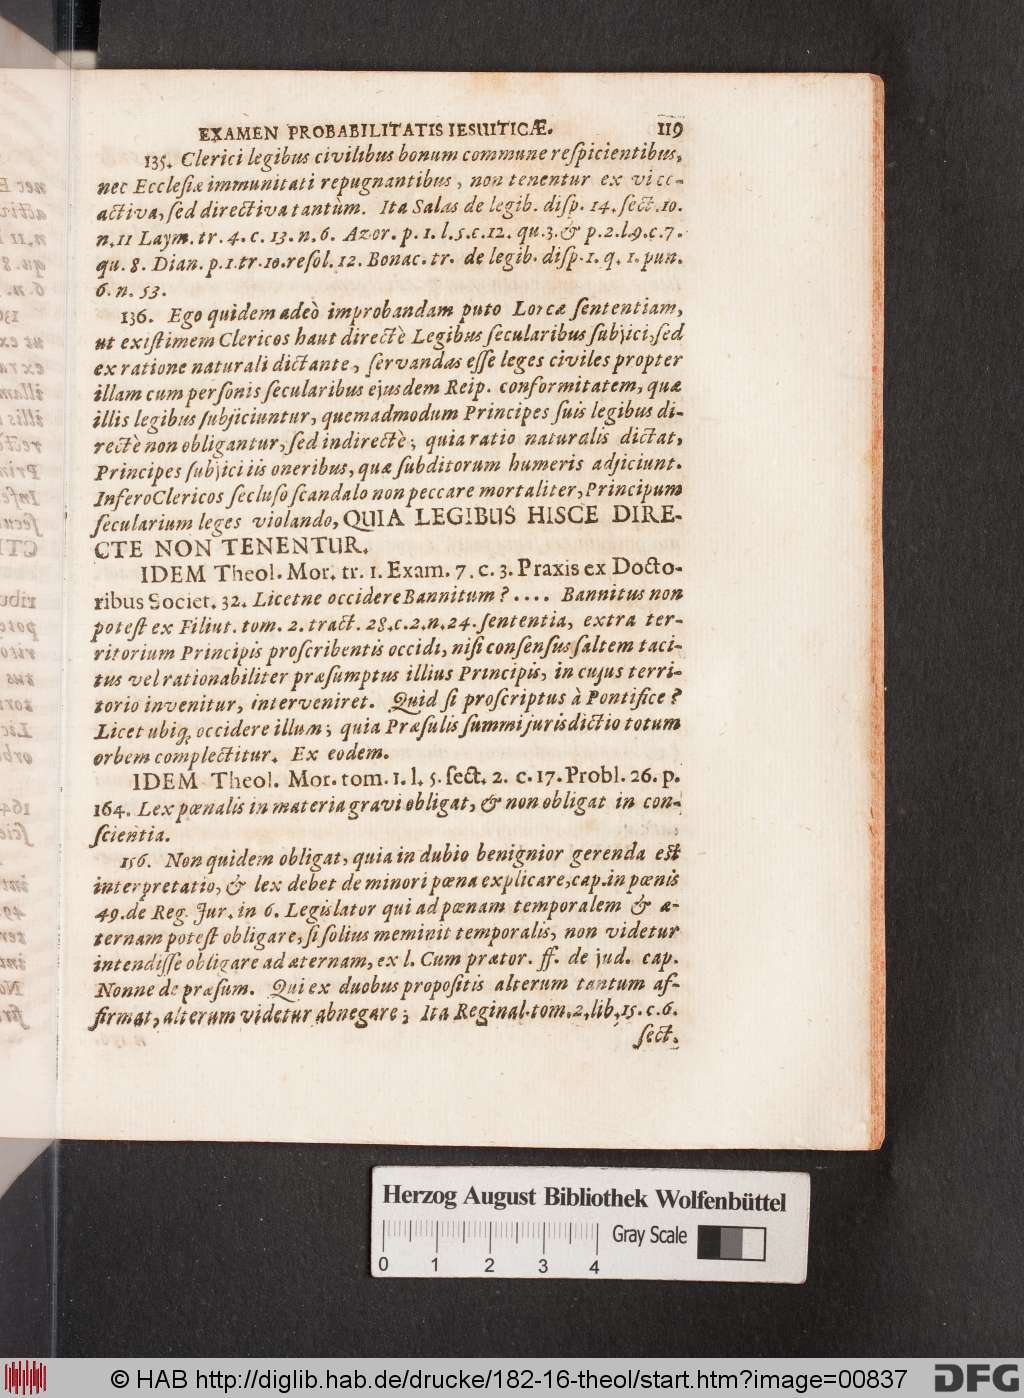 EXAMEN PROBABILITATIS IESUITICÆ. 119
135. Clerici legibus civilibus bonum commune reſpicientibus,
nec Eccleſiæ immunitati repugnantibus, non tenentur ex vi co-
activa, ſed directiva tantùm. Ita Salas de legib. diſp. 14. ſect. 10.
n. 11 Laym. tr. 4. c. 13. n. 6. Azor. p. 1. l. 5. c. 12. qu. 3. & p. 2. l. 9. c. 7.
qu. 8. Dian. p. 1. tr. 10. reſol. 12. Bonac. tr. de legib. diſp. 1. q. 1. pun.
6. n. 53.
136. Ego quidem adeò improbandam puto Lorcæ ſententiam,
ut exiſtimem Clericos haut directè Legibus ſecularibus ſubjici, ſed
ex ratione naturali dictante, ſervandas eſſe leges civiles propter
illam cum perſonis ſecularibus ejusdem Reip. conformitatem, quæ
illis legibus ſubjiciuntur, quemadmodum Principes ſuis legibus di-
rectè non obligantur, ſed indirectè; quia ratio naturalis dictat,
Principes ſubjici iis oneribus, quæ ſubditorum humeris adjiciunt.
Infero Clericos ſecluſo ſcandalo non peccare mortaliter, Principum
ſecularium leges violando, QUIA LEGIBUS HISCE DIRE-
CTE NON TENENTUR.
IDEM Theol. Mor. tr. 1. Exam. 7. c. 3. Praxis ex Docto-
ribus Societ. 32. Licetne occidere Bannitum? .... Bannitus non
poteſt ex Filiut. tom. 2. tract. 28. c. 2. n. 24. ſententia, extra ter-
ritorium Principis proſcribentis occidi, niſi conſenſus ſaltem taci-
tus vel rationabiliter præſumptus illius Principis, in cujus terri-
torio invenitur, interveniret. Quid ſi proſcriptus à Pontifice?
Licet ubiq; occidere illum; quia Præſulis ſummi jurisdictio totum
orbem complectitur. Ex eodem.
IDEM Theol. Mor. tom. 1. l. 5. ſect. 2. c. 17. Probl. 26. p.
164. Lex pœnalis in materia gravi obligat, & non obligat in con-
ſcientia.
156. Non quidem obligat, quia in dubio benignior gerenda eſt
interpretatio, & lex debet de minori pœna explicare, cap. in pœnis
49. de Reg. Jur. in 6. Legislator qui ad pœnam temporalem & æ-
ternam poteſt obligare, ſi ſolius meminit temporalis, non videtur
intendiſſe obligare ad æternam, ex l. Cum prætor. ff. de jud. cap.
Nonne de præſum. Qui ex duobus propoſitis alterum tantum af-
firmat, alterum videtur abnegare; Ita Reginal. tom. 2, lib. 15. c. 6.
ſect.
Herzog August Bibliothek Wolfenbüttel
Gray Scale
0 1 2 3 4
© HAB http://diglib.hab.de/drucke/182-16-theol/start.htm?image=00837
DFG